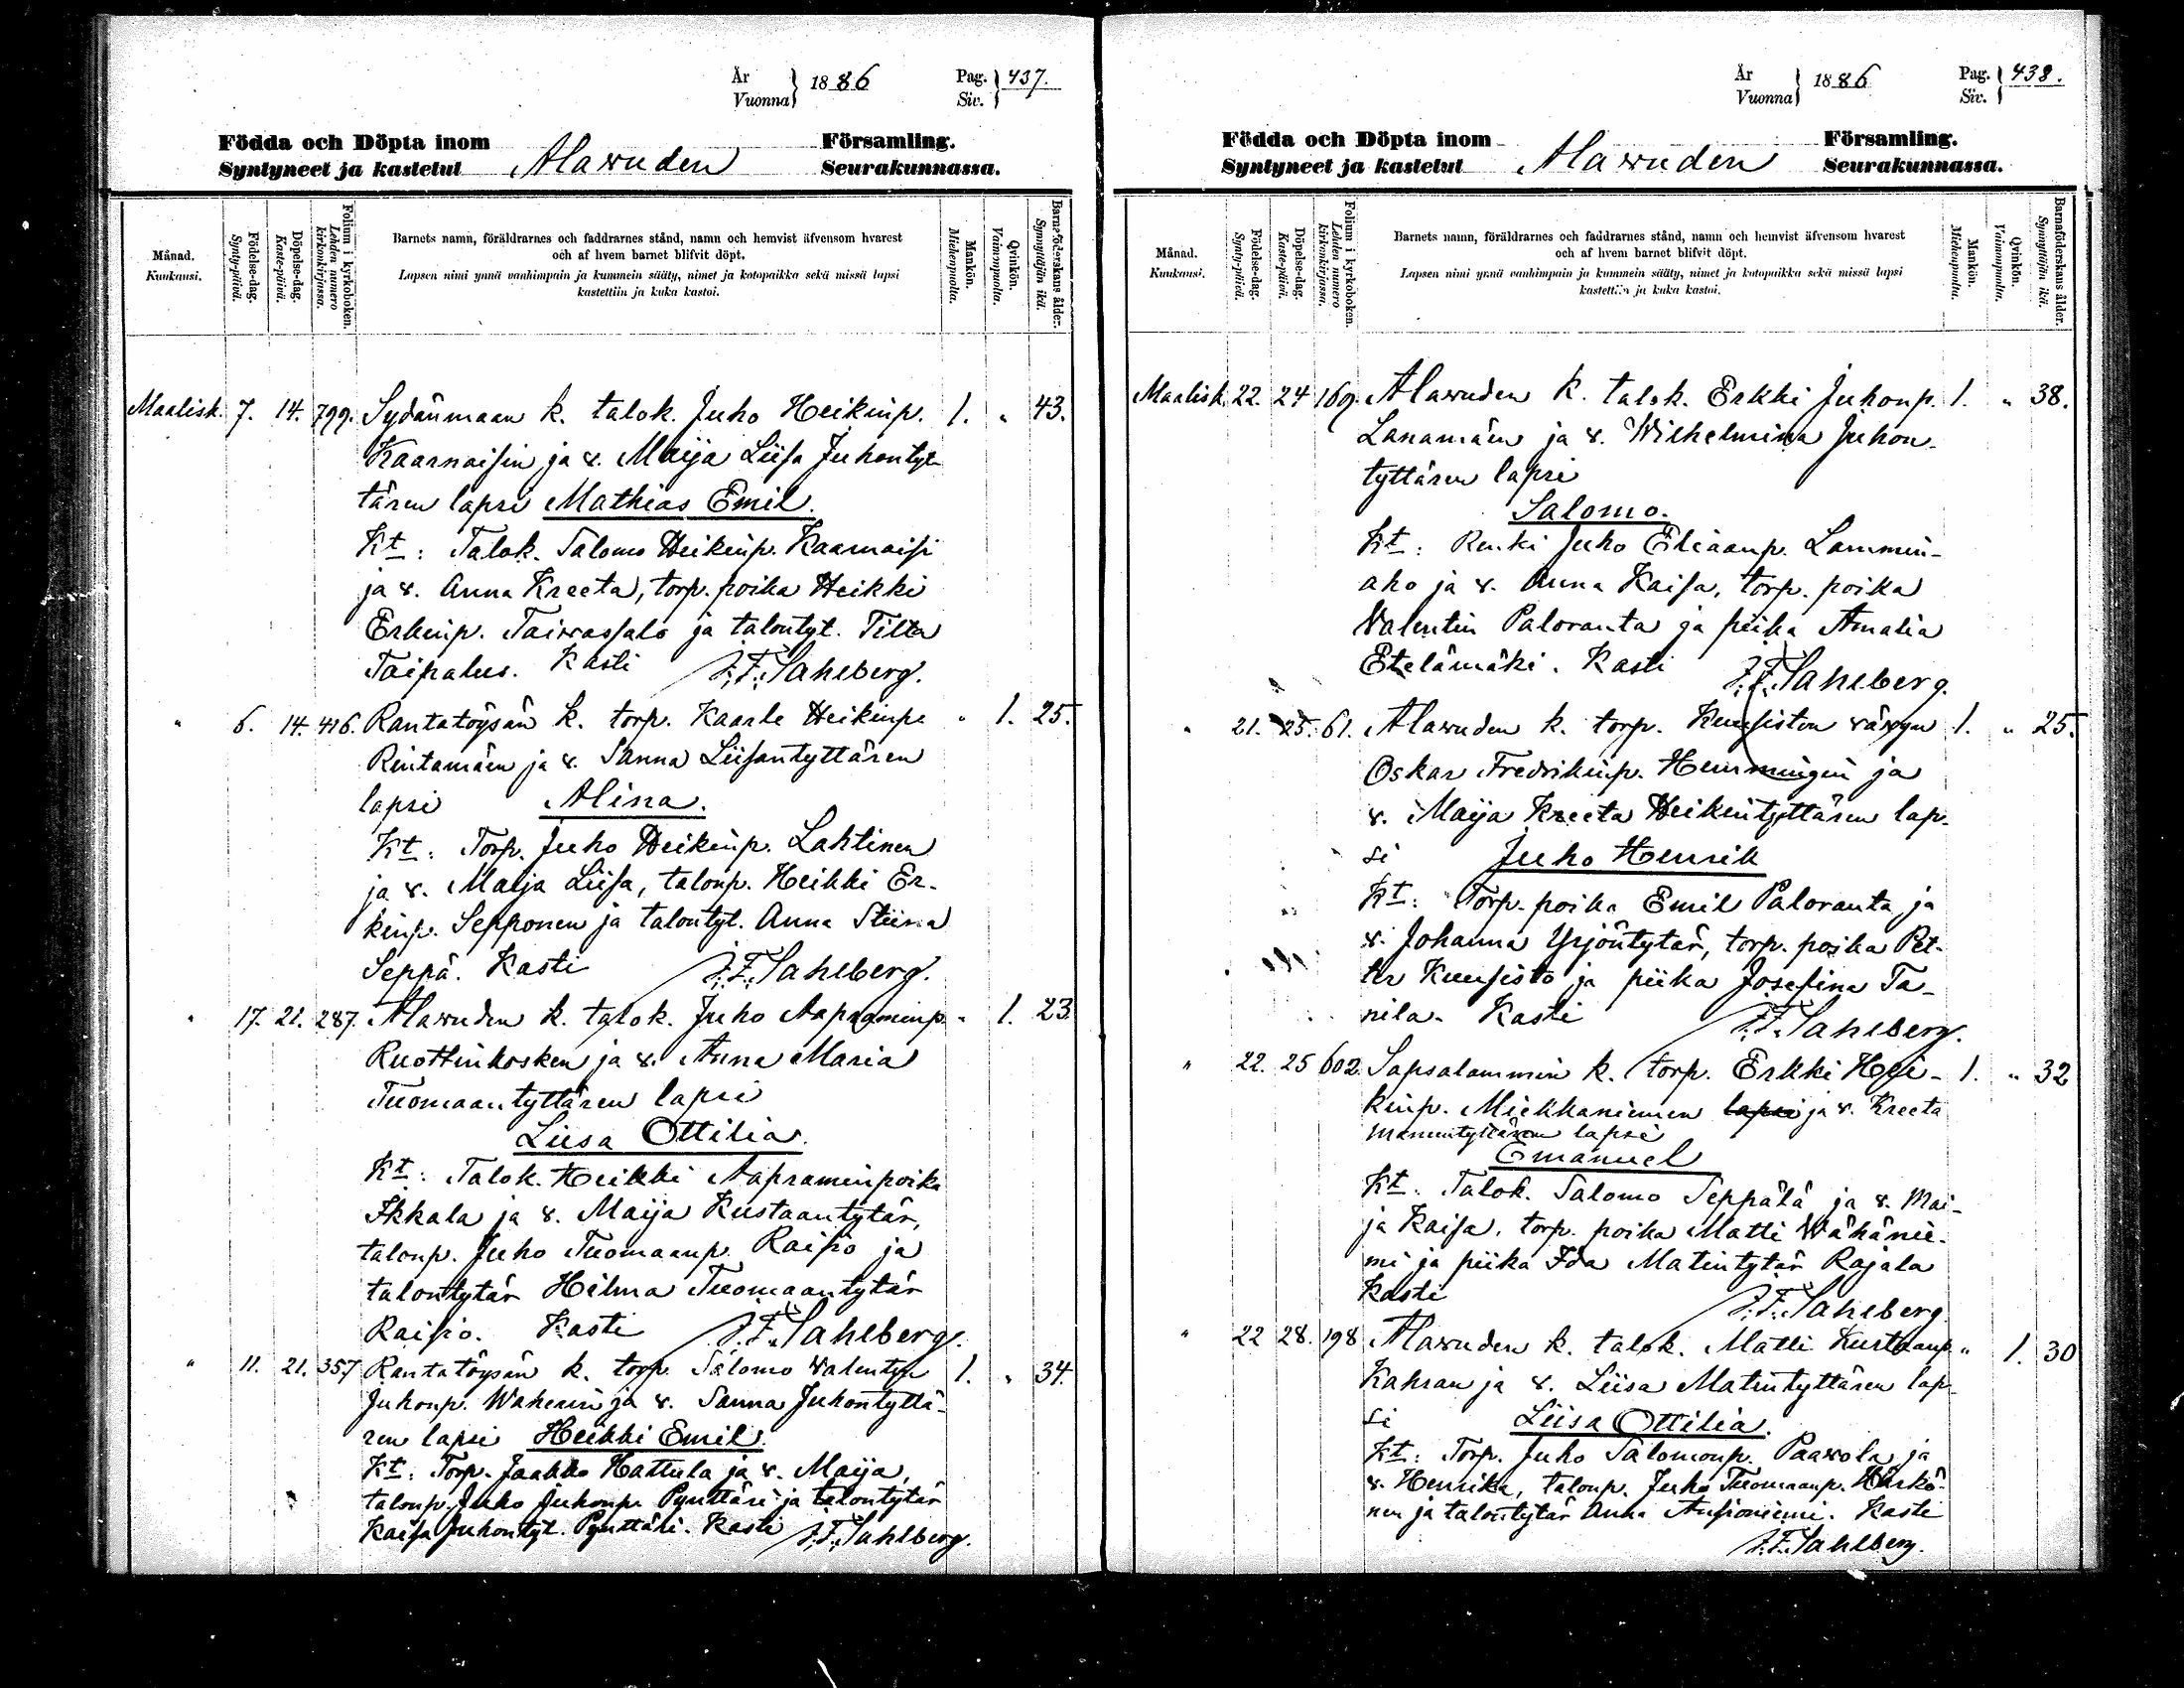 År
Vuonna } 1886 Pag.
Siv. } 437.
Födda och Döpta inom Församling.
Syntyneet ja kastetut Alavuden Seurakunnassa.
Månad.
Kuukausi.
Födelse-dag.
Synty-päivä.
Döpelse-dag.
Kaste-päivä.
Folium i kyrkoboken.
Lehden numero
kirkonkirjassa.
Barnets namn, föräldrarnes och faddrarnes stånd, namn och hemvist äfvensom hvarest
och af hvem barnet blifvit döpt.
Lapsen nimi ynnä vanhimpain ja kummein sääty, nimet ja kotopaikka sekä missä lapsi
kastettiin ja kuka kastoi.
Mankön.
Miehenpuolta.
Qvinkön.
Vaimonpuolta.
Barnaföderskans ålder.
Synnyttäjän ikä.
Maalisk. 7. 14. 799. Sydänmaan k. talok. Juho Heikinp. 1. " 43.
Kaarnaisin ja v. Maija Liisa Juhontyt-
tären lapsi Mathias Emil.
Kt: Talok. Salomo Heikinp. Kaarnaisi
ja v. Anna Kreeta, torp. poika Heikki
Erkinp. Taivassalo ja talontyt. Tilta
Taipalus. Kasti J. F. Sahlberg.
" 6. 14. 416. Rantatöysän k. torp. Kaarle Heikinp. " 1. 25.
Rintamäen ja v. Sanna Liisantyttären
lapsi Alina.
Kt: Torp. Juho Heikinp. Lahtinen
ja v. Maija Liisa, talonp. Heikki Er-
kinp. Sepponen ja talontyt. Anna Stiina
Seppä. Kasti J. F. Sahlberg.
" 17. 21. 287. Alavuden k. talok. Juho Aapraminp. " 1. 23
Ruottinkosken ja v. Anna Maria
Tuomaantyttären lapsi
Liisa Ottilia.
Kt: Talok. Heikki Aapraminpoika
Ikkala ja v. Maija Kustaantytär,
talonp. Juho Tuomaanp. Raisio ja
talontytär Hilma Tuomaantytär
Raisio. Kasti J. F. Sahlberg.
" 11. 21. 357 Rantatöysän k. torp. Salomo Valentin 1. " 34.
Juhonp. ja v. Sanna Juhontyttä-
ren lapsi Heikki Emil.
Kt: Torp. Jaakko Hattula ja v. Maija,
talonp. Juho Juhonp. Pynttäri ja talontytär
Kaisa Juhontyt. Pynttäri. Kasti J. F. Sahlberg.
År
Vuonna } 1886 Pag.
Siv. } 438.
Födda och Döpta inom Församling.
Syntyneet ja kastetut Alavuden Seurakunnassa.
Månad.
Kuukausi.
Födelse-dag.
Synty-päivä.
Döpelse-dag.
Kaste-päivä.
Folium i kyrkoboken.
Lehden numero
kirkonkirjassa.
Barnets namn, föräldrarnes och faddrarnes stånd, namn och hemvist äfvensom hvarest
och af hvem barnet blifvit döpt.
Lapsen nimi ynnä vanhimpain ja kummein sääty, nimet ja kotopaikka sekä missä lapsi
kastettiin ja kuka kastoi.
Mankön.
Miehenpuolta.
Qvinkön.
Vaimonpuolta.
Barnaföderskans ålder.
Synnyttäjän ikä.
Maalisk. 22. 24 169. Alavuden k. talok. Erkki Juhonp. 1. " 38.
Lanamäen ja v. Wilhelmina Juhon-
tyttären lapsi
Salomo.
Kt: Renki Juho Eliaanp. Lammin-
aho ja v. Anna Kaisa, torp. poika
Valentin Paloranta ja piika Amalia
Etelämäki. Kasti J. F. Sahlberg.
" 21. 25. 61. Alavuden k. torp. Kuusiston vävyn 1. " 25.
Oskar Fredrikinp. Hemmingin ja
v. Maija Kreeta Heikintyttären lap-
si Juho Henrik
Kt: Torp. poika Emil Paloranta ja
v. Johanna Yrjöntytär, torp. poika Pet-
ter Kuusisto ja piika Josefina Ta-
nila. Kasti J. F. Sahlberg.
" 22. 25 602. Sapsalammin k. torp. Erkki Hei- 1. " 32
kinp. Miekkaniemen lapsi ja v. Kreeta
Manuntyttären lapsi
Emanuel
Kt. Talok. Salomo Seppälä ja v. Mai-
ja Kaisa, torp. poika Matti Wähänie-
mi ja piika Ida Matintytär Rajala
Kasti J. F. Sahlberg.
" 22 28. 198 Alavuden k. talok. Matti Kustaanp. " 1. 30
Kahran ja v. Liisa Matintyttären lap-
si Liisa Ottilia.
Kt: Torp. Juho Salomonp. Paavola ja
v. Henrika, talonp. Juho Tuomaanp. Härkö-
nen ja talontytär Anna. Kasti
J. F. Sahlberg.